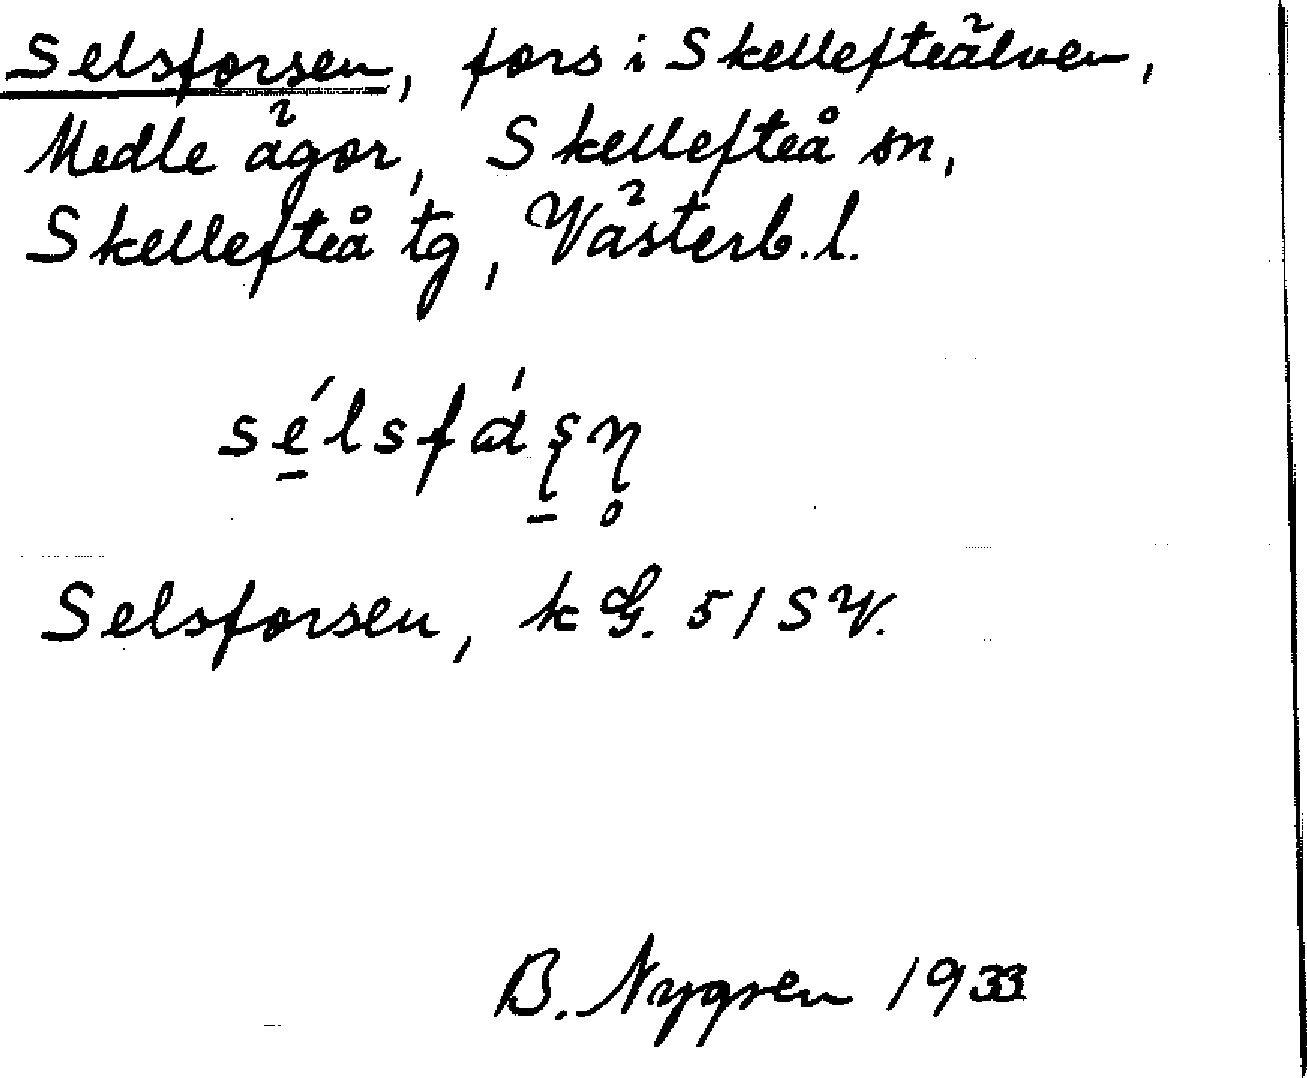 Selsforsen, fors i Skellefteälven,
Medle ägor, Skellefteå sn,
Skellefteå tg, Västerb. l.
sélsfáʂɳ̥
Selsforsen, k G. 51 SV.
B. Nygren 1933